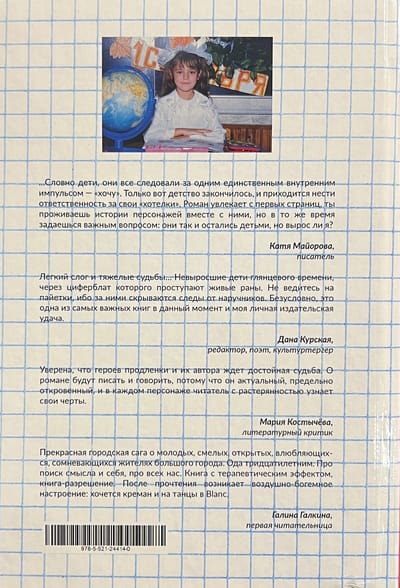 1С
БРЯ
...Словно дети, они все следовали за одним единственным внутренним
импульсом — «хочу». Только вот детство закончилось, и приходится нести
ответственность за свои «хотелки». Роман увлекает с первых страниц, ты
проживаешь истории персонажей вместе с ними, но в то же время
задаешься важным вопросом: они так и остались детьми, но вырос ли я?
Катя Майорова,
писатель
Легкий слог и тяжелые судьбы... Невыросшие дети глянцевого времени,
через циферблат которого проступают живые раны. Не ведитесь на
пайетки, ибо за ними скрываются следы от наручников. Безусловно, это
одна из самых важных книг в данный момент и моя личная издательская
удача.
Дана Курская,
редактор, поэт, культуртрегер
Уверена, что героев продленки и их автора ждет достойная судьба. О
романе будут писать и говорить, потому что он актуальный, предельно
откровенный, и в каждом персонаже читатель с растерянностью узнает
свои черты.
Мария Костычёва,
литературный критик
Прекрасная городская сага о молодых, смелых, открытых, влюбляющих-
ся, сомневающихся жителях большого города. Ода тридцатилетним. Про
поиск смысла и себя, про всех нас. Книга с терапевтическим эффектом,
книга-разрешение. После прочтения возникает воздушно-богемное
настроение: хочется креман и на танцы в Blanc.
Галина Галкина,
первая читательница
978-5-521-24414-0